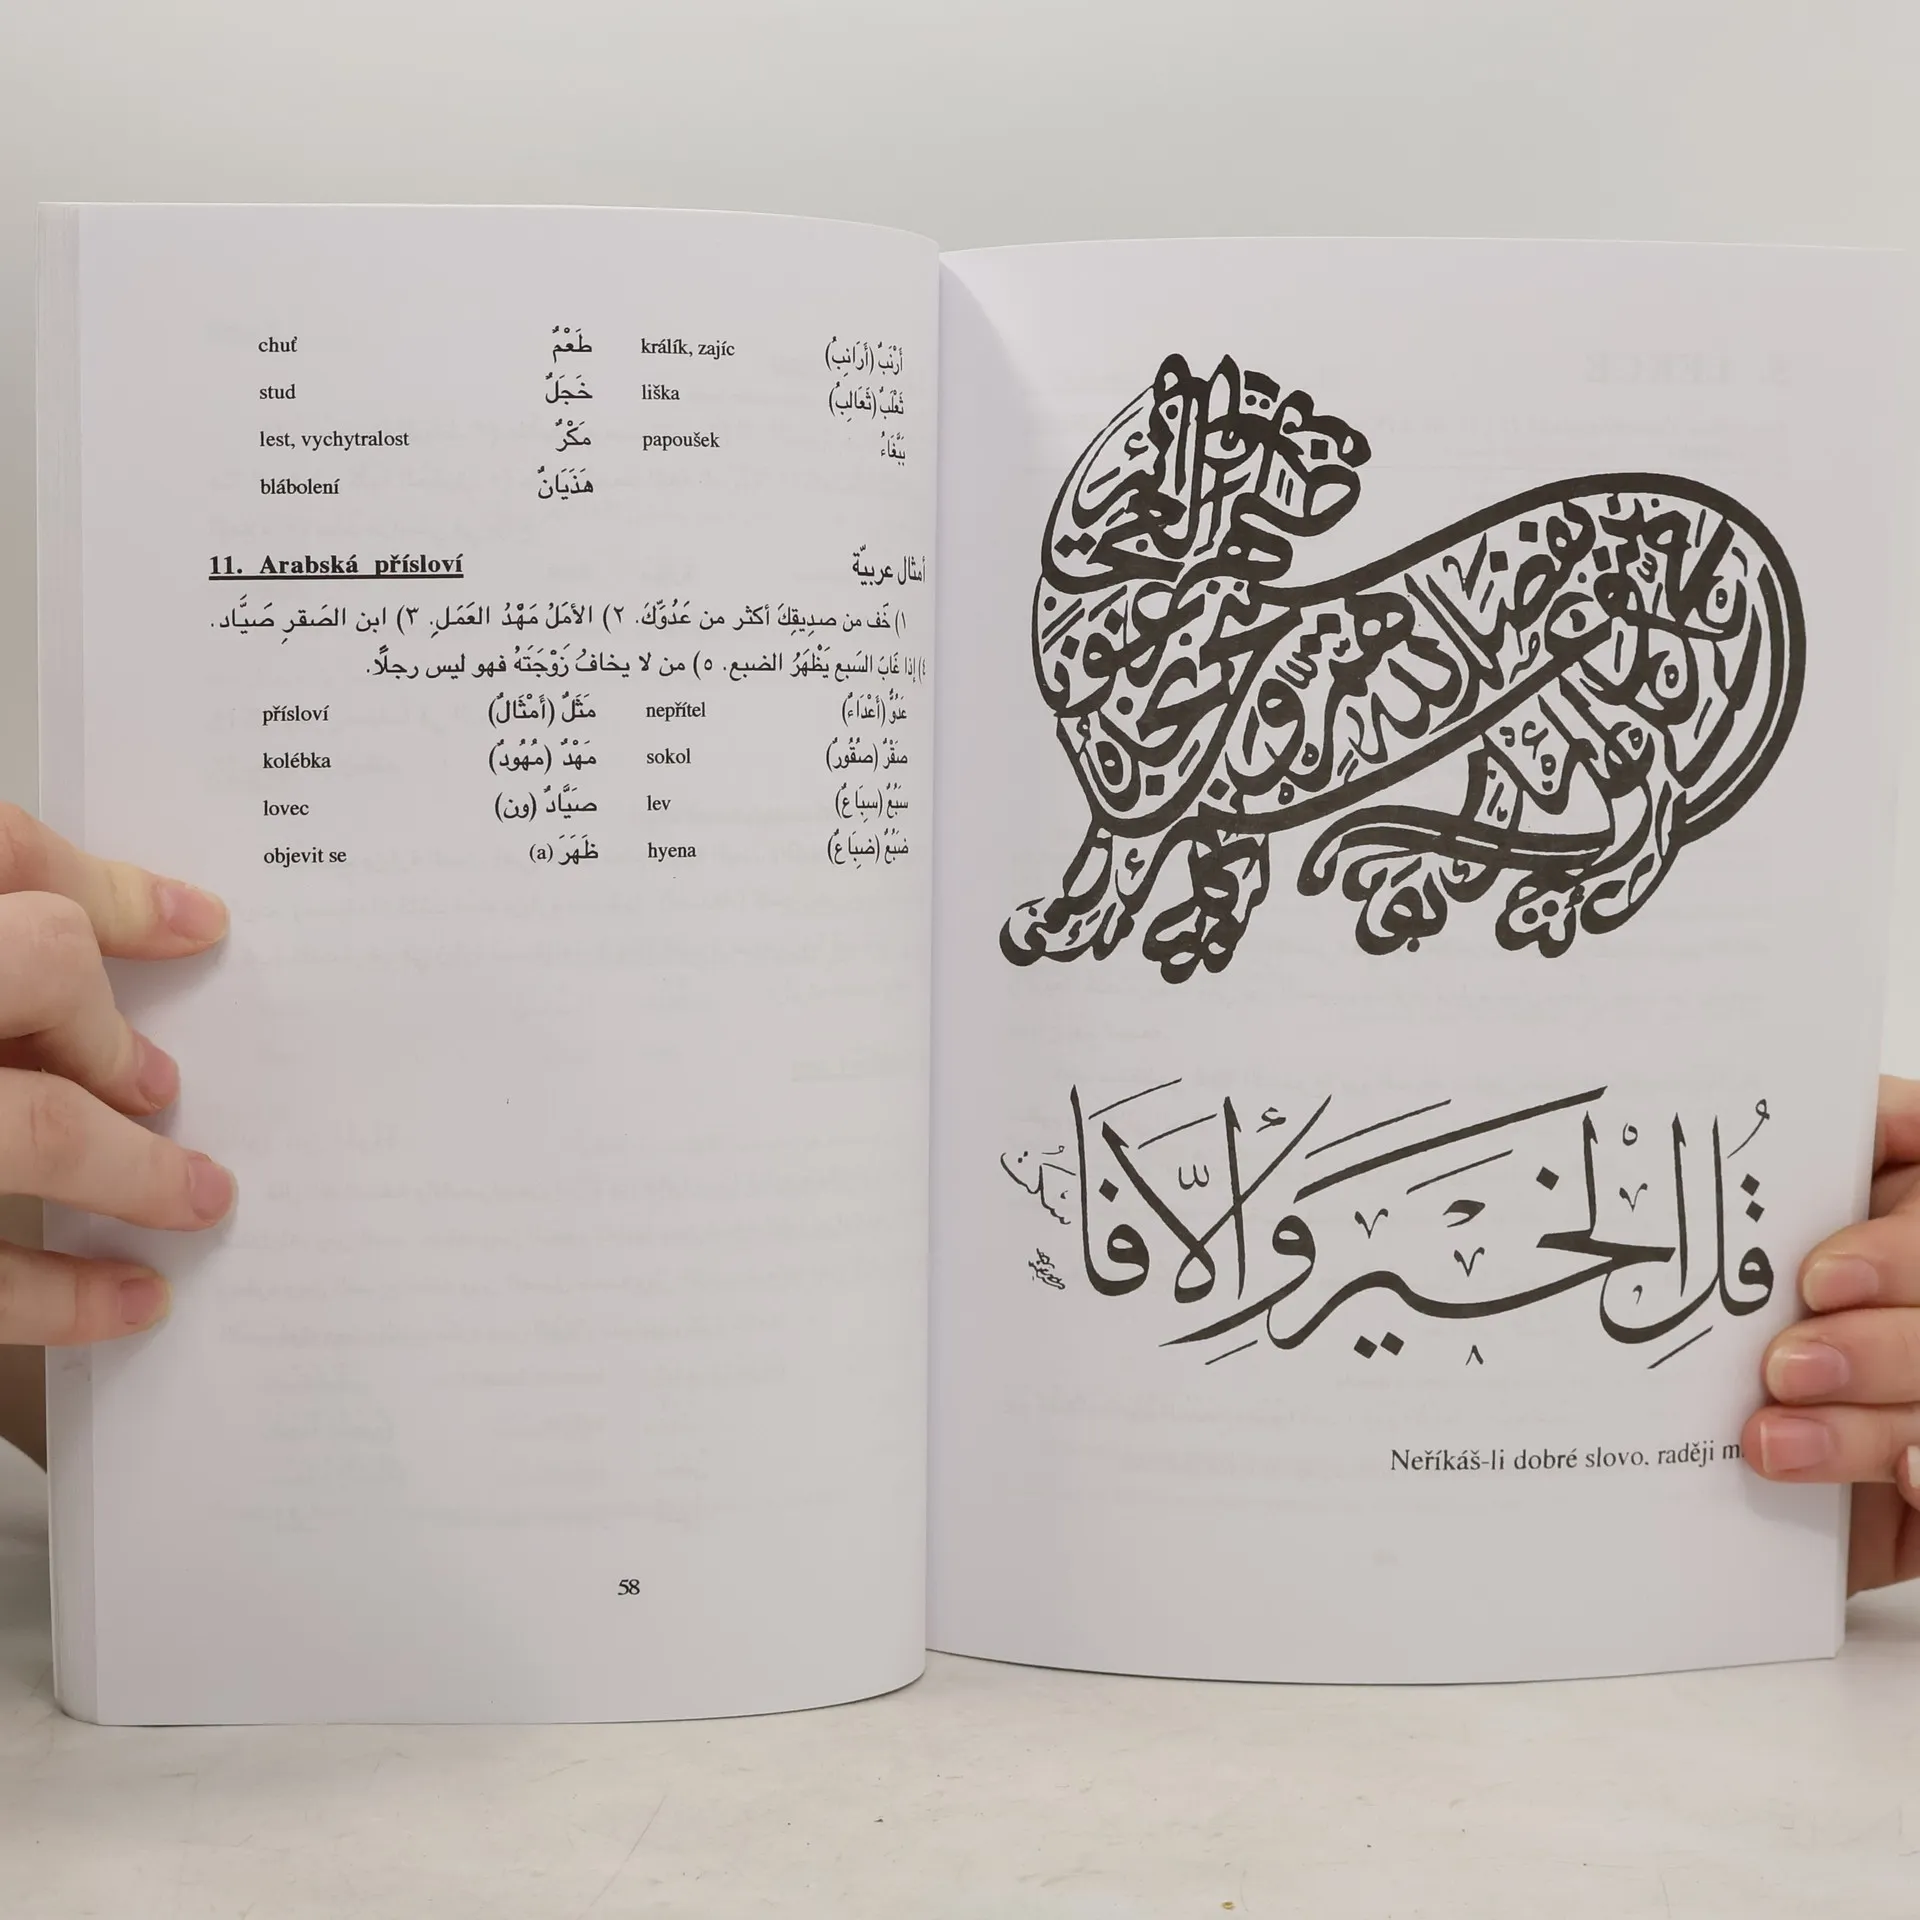 chuť طَعْمٌ králík, zajíc أَرْنَبٌ (أَرَانِبُ)
stud خَجَلٌ liška ثَعْلَبٌ (ثَعَالِبُ)
lest, vychytralost مَكْرٌ papoušek بَبَّغَاءُ
blábolení هَذَيَانٌ
11. Arabská přísloví أمثال عربيّة
١) خَف من صديقِكَ أكثر من عَدُوِّكَ. ٢) الأمَلُ مَهْدُ العَمَلِ. ٣) ابن الصَقرِ صَيَّاد.
٤) إذا غَابَ السَبع يَظْهَرُ الضبع. ٥) من لا يخافُ زَوْجَتَهُ فهو ليس رجلًا.
přísloví مَثَلٌ (أَمْثَالٌ) nepřítel عَدُوٌّ (أَعْدَاءٌ)
kolébka مَهْدٌ (مُهُودٌ) sokol صَقْرٌ (صُقُورٌ)
lovec صَيَّادٌ (ون) lev سَبُعٌ (سِبَاعٌ)
objevit se ظَهَرَ (a) hyena ضَبُعٌ (ضِبَاعٌ)
58
قُلِ الْخَيْرَ وَإِلَّا فَاسْكُتْ
Neříkáš-li dobré slovo, raději